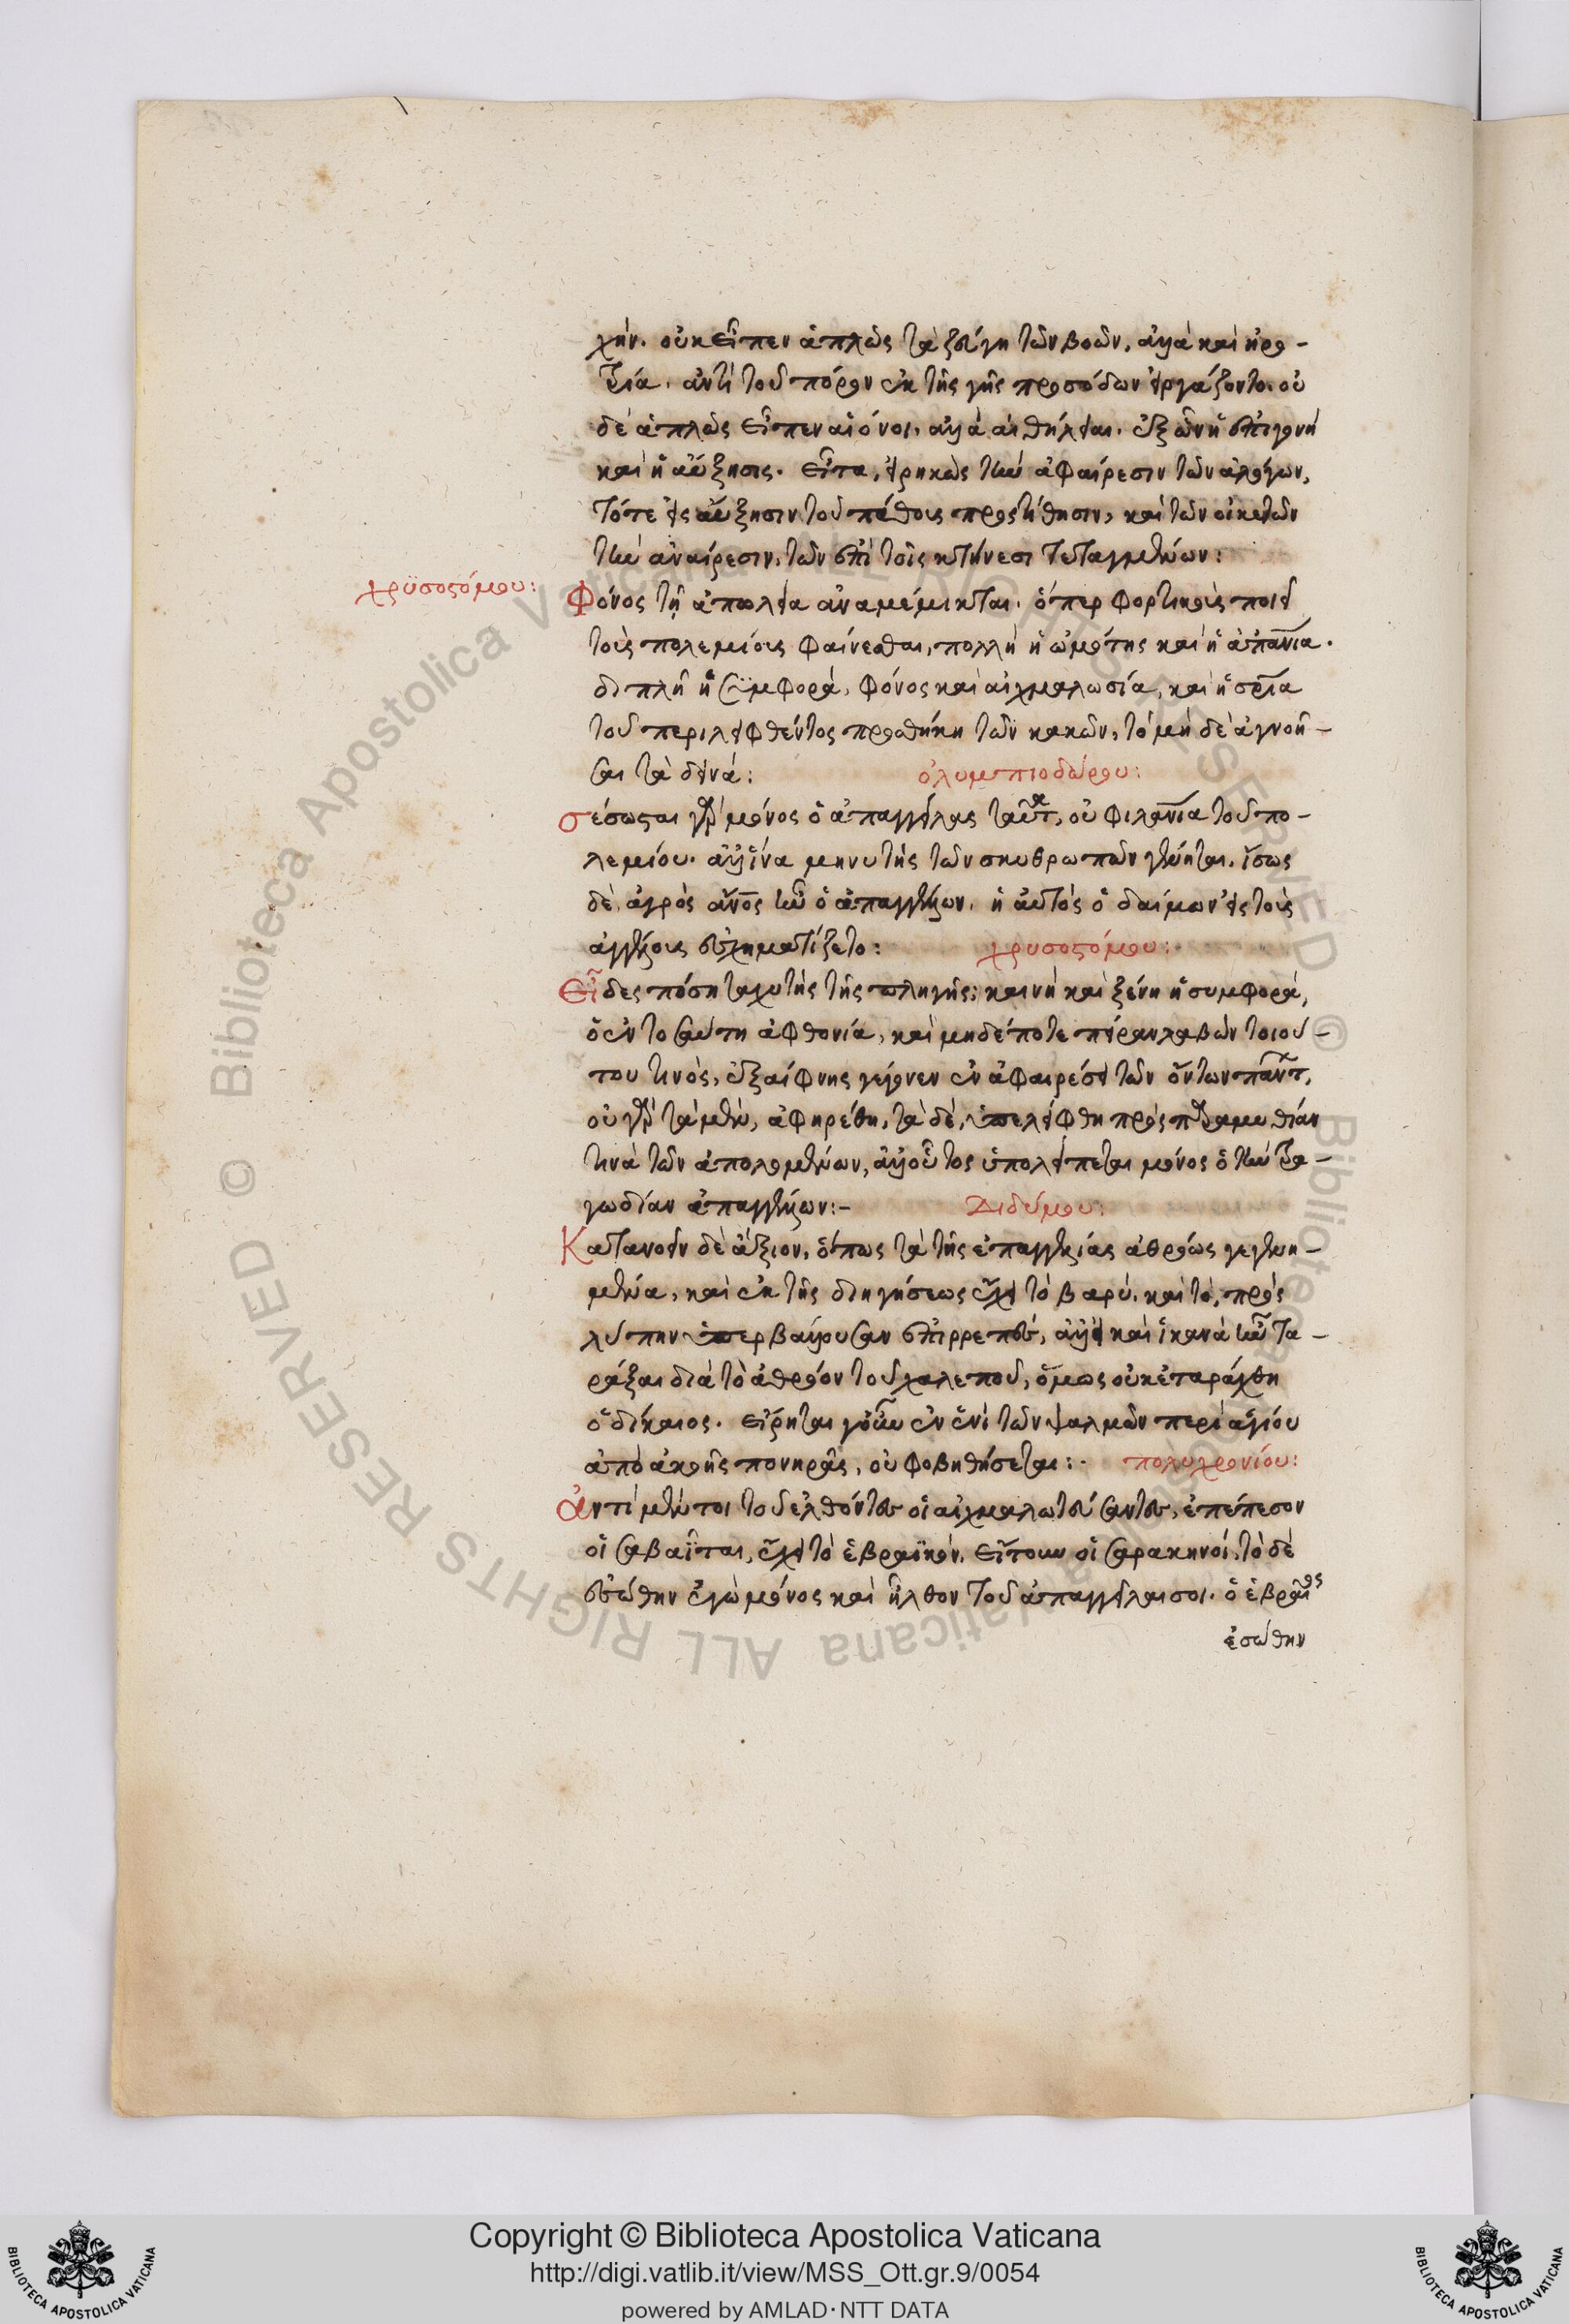 χήν. οὐκ εἶπεν ἁπλῶς τὰ ζεύγη τῶν βοῶν, ἀλλὰ καὶ ἠρο-
τρία. ἀντὶ τοῦ πόρον ἐκ τῆς γῆς προσόδων εἰργάζοντο. οὐ
δὲ ἁπλῶς εἶπεν αἱ ὄνοι. ἀλλὰ αἱ θήλειαι. ἐξ ὧν ἡ ἐπιγονὴ
καὶ ἡ αὔξησις. εἶτα, εἰρηκὼς τὴν ἀφαίρεσιν τῶν ἀλόγων,
τότε εἰς αὔξησιν τοῦ πάθους προστίθησιν, καὶ τῶν οἰκετῶν
τὴν ἀναίρεσιν, τῶν ἐπὶ τοῖς κτήνεσι τεταγμένων:
χρϋσοστόμου:
Φόνος τῇ ἀπωλεία ἀναμέμικται. ὅπερ φορτικοὺς ποιεῖ
τοὺς πολεμίους φαίνεσθαι, πολλὴ ἡ ὠμότης καὶ ἡ ἀπανία.
διπλῆ ἡ συμφορά, φόνος καὶ αἰχμαλωσία, καὶ ἡ σρία
τοῦ περιλειφθέντος προσθήκη τῶν κακῶν, τὸ μὴ δὲ ἀγνοῆ-
σαι τὰ δεινά:
ὀλυμπιοδώρου:
σέσωσται γὰρ μόνος ὁ ἀπαγγείλας ταῦτα, οὐ φιλανία τοῦ πο-
λεμίου. ἀλλ' ἵνα μηνυτὴς τῶν σκυθρωπῶν γένηται. ἴσως
δὲ ἀγρὸς ἄνος ἦν ὁ ἀπαγγέλλων. ἢ αὐτὸς ὁ δαίμων εἰς τοὺς
ἀγγέλους ἐσχηματίζετο:
χρυσοστόμου:
Εἶδες πόση ταχυτὴς τῆς πληγῆς; καινὴ καὶ ξένη ἡ συμφορά,
ὁ ἐν τοσαύτη ἀφθονία, καὶ μηδέποτε πεῖραν λαβὼν τοιού-
του τινὸς, ἐξαίφνης γέγονεν ἐν ἀφαιρέσει τῶν ὄντων πάντ,
οὐ γὰρ τὰ μὲν, ἀφηρέθη, τὰ δὲ, ὑπελείφθη πρὸς παραμυθίαν
τινὰ τῶν ἀπολομένων, ἀλλ' οὗτος ὑπολείπεται μόνος ὁ τὴν τρα-
γωδίαν ἀπαγγέλλων:-
Διδύμου:
Κατανοεῖν δὲ ἄξιον, ὅπως τὰ τῆς ἐπαγγελίας ἀθρόως γεγενη-
μένα, καὶ ἐκ τῆς διηγήσεως ἔχει τὸ βαρύ. καὶ τὸ, πρὸς
λύπην ὑπερβαίνουσαν ἐπιρρεπὲς, ἀλλ' εἰ καὶ ἱκανὰ ἦν τα-
ράξαι διὰ τὸ ἀθρόον τοῦ χαλεποῦ, ὅμως οὐκ ἐταράχθη
ὁ δίκαιος. εἴρηται γοῦν ἐν ἑνὶ τῶν ψαλμῶν περὶ ἁγίου
ἀπὸ ἀκοῆς πονηρᾶς, οὐ φοβηθήσεται:.
πολυχρονίου:
Ἀντὶ μέντοι τοῦ ἐλθόντες οἱ αἰχμαλωτεύσαντες, ἐπέπεσον
οἱ σαβαῖται, ἔχει τὸ ἑβραϊκόν. εἴτουν οἱ σαρακηνοί, τὸ δὲ
ἐσώθην ἐγὼ μόνος καὶ ἦλθον τοῦ ἀπαγγεῖλαι σοι. ὁ ἑβραῖος
ἐσώθην
Copyright © Biblioteca Apostolica Vaticana
http://digi.vatlib.it/view/MSS_Ott.gr.9/0054
powered by AMLAD·NTT DATA
BIBLIOTECA APOSTOLICA VATICANA
BIBLIOTECA APOSTOLICA VATICANA
© Biblioteca Apostolica Vaticana ALL RIGHTS RESERVED © Biblioteca Apostolica Vaticana ALL RIGHTS RESERVED